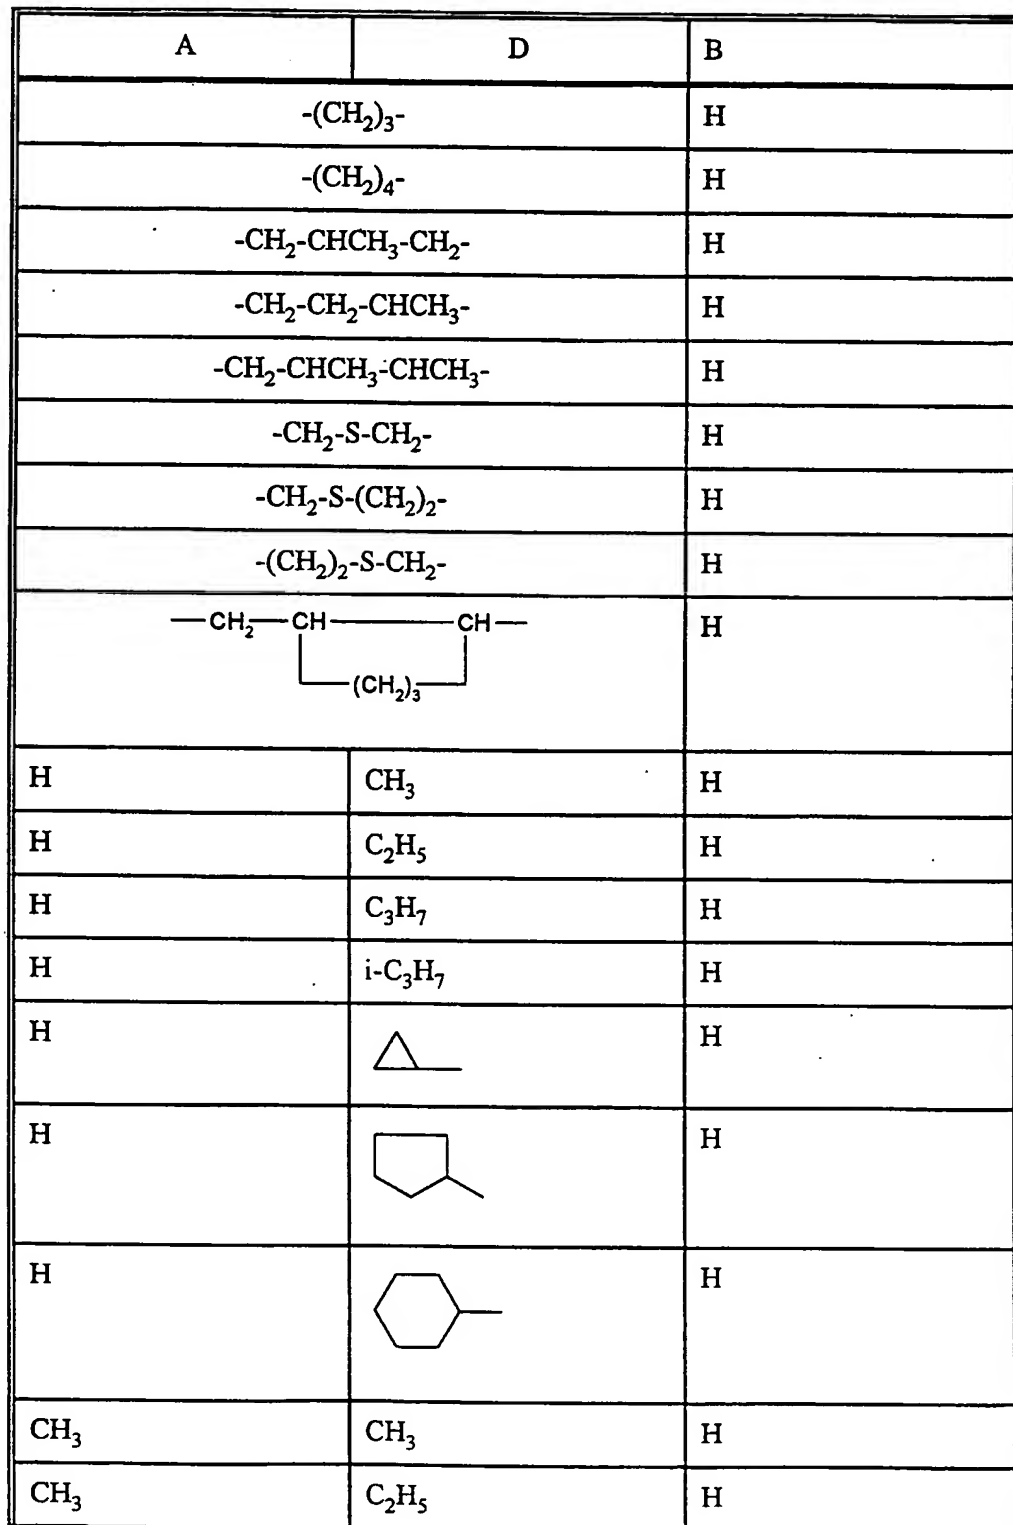 A D B
-(CH₂)₃- H
-(CH₂)₄- H
-CH₂-CHCH₃-CH₂- H
-CH₂-CH₂-CHCH₃- H
-CH₂-CHCH₃-CHCH₃- H
-CH₂-S-CH₂- H
-CH₂-S-(CH₂)₂- H
-(CH₂)₂-S-CH₂- H
—CH₂—CH—CH— H
(CH₂)₃
H CH₃ H
H C₂H₅ H
H C₃H₇ H
H i-C₃H₇ H
H H
H H
H H
CH₃ CH₃ H
CH₃ C₂H₅ H